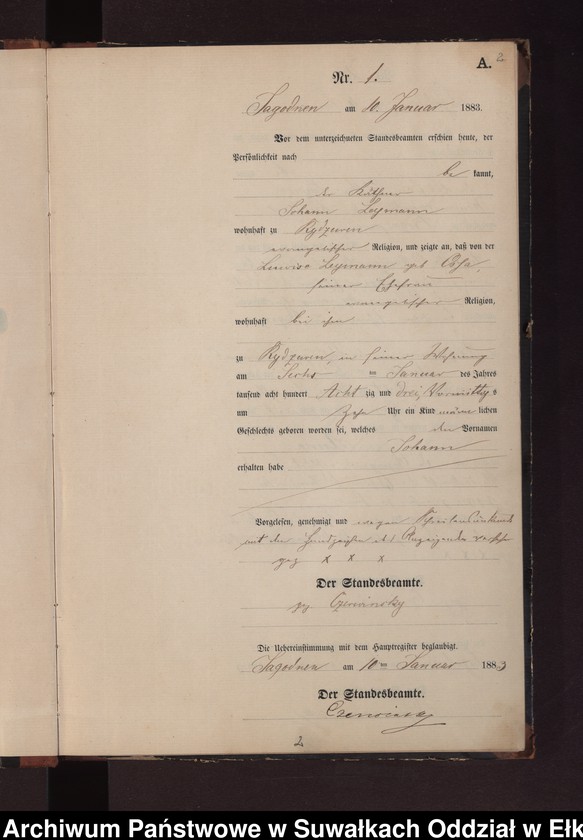 A. 2
Nr. 1.
Jagodnen am 10. Januar 1883.
Vor dem unterzeichneten Standesbeamten erschien heute, der
Persönlichkeit nach
be kannt,
der Käthner
Johann
wohnhaft zu Rydzewen
evangelischer Religion, und zeigte an, daß von der
Louise geb.
seiner Ehefrau
evangelischer Religion,
wohnhaft bei ihm
zu Rydzewen, in seiner Wohnung
am Sechs ten Januar des Jahres
tausend acht hundert Acht zig und drei, Vormittags
um Zehn Uhr ein Kind männ lichen
Geschlechts geboren worden sei, welches den Vornamen
Johann
erhalten habe
Vorgelesen, genehmigt und wegen
mit den Handzeichen des Anzeigenden
gez x x x
Der Standesbeamte.
gez Czerwinsky
Die Uebereinstimmung mit dem Hauptregister beglaubigt.
Jagodnen am 10ten Januar 1883
Der Standesbeamte.
Czerwinsky
2
Archiwum Państwowe w Suwałkach Oddział w Ełk